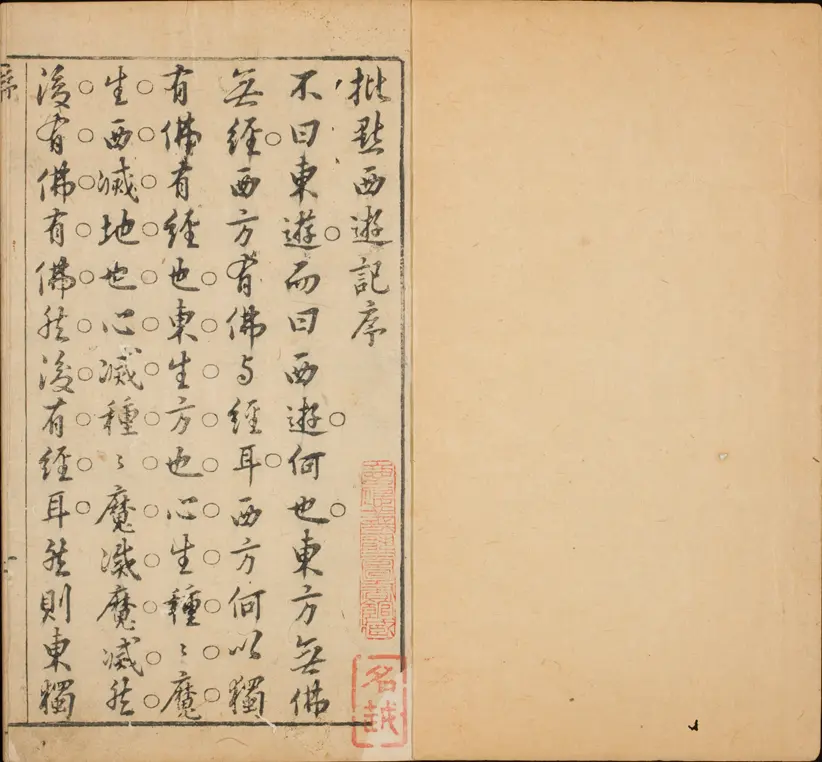 批點西遊記序
不曰東遊而曰西遊何也東方無佛
無經西方有佛与經耳西方何以獨
有佛有經也東生方也心生種〻魔
生西滅地也心滅種〻魔滅魔滅然
後有佛有佛然後有經耳然則東獨
序
名越